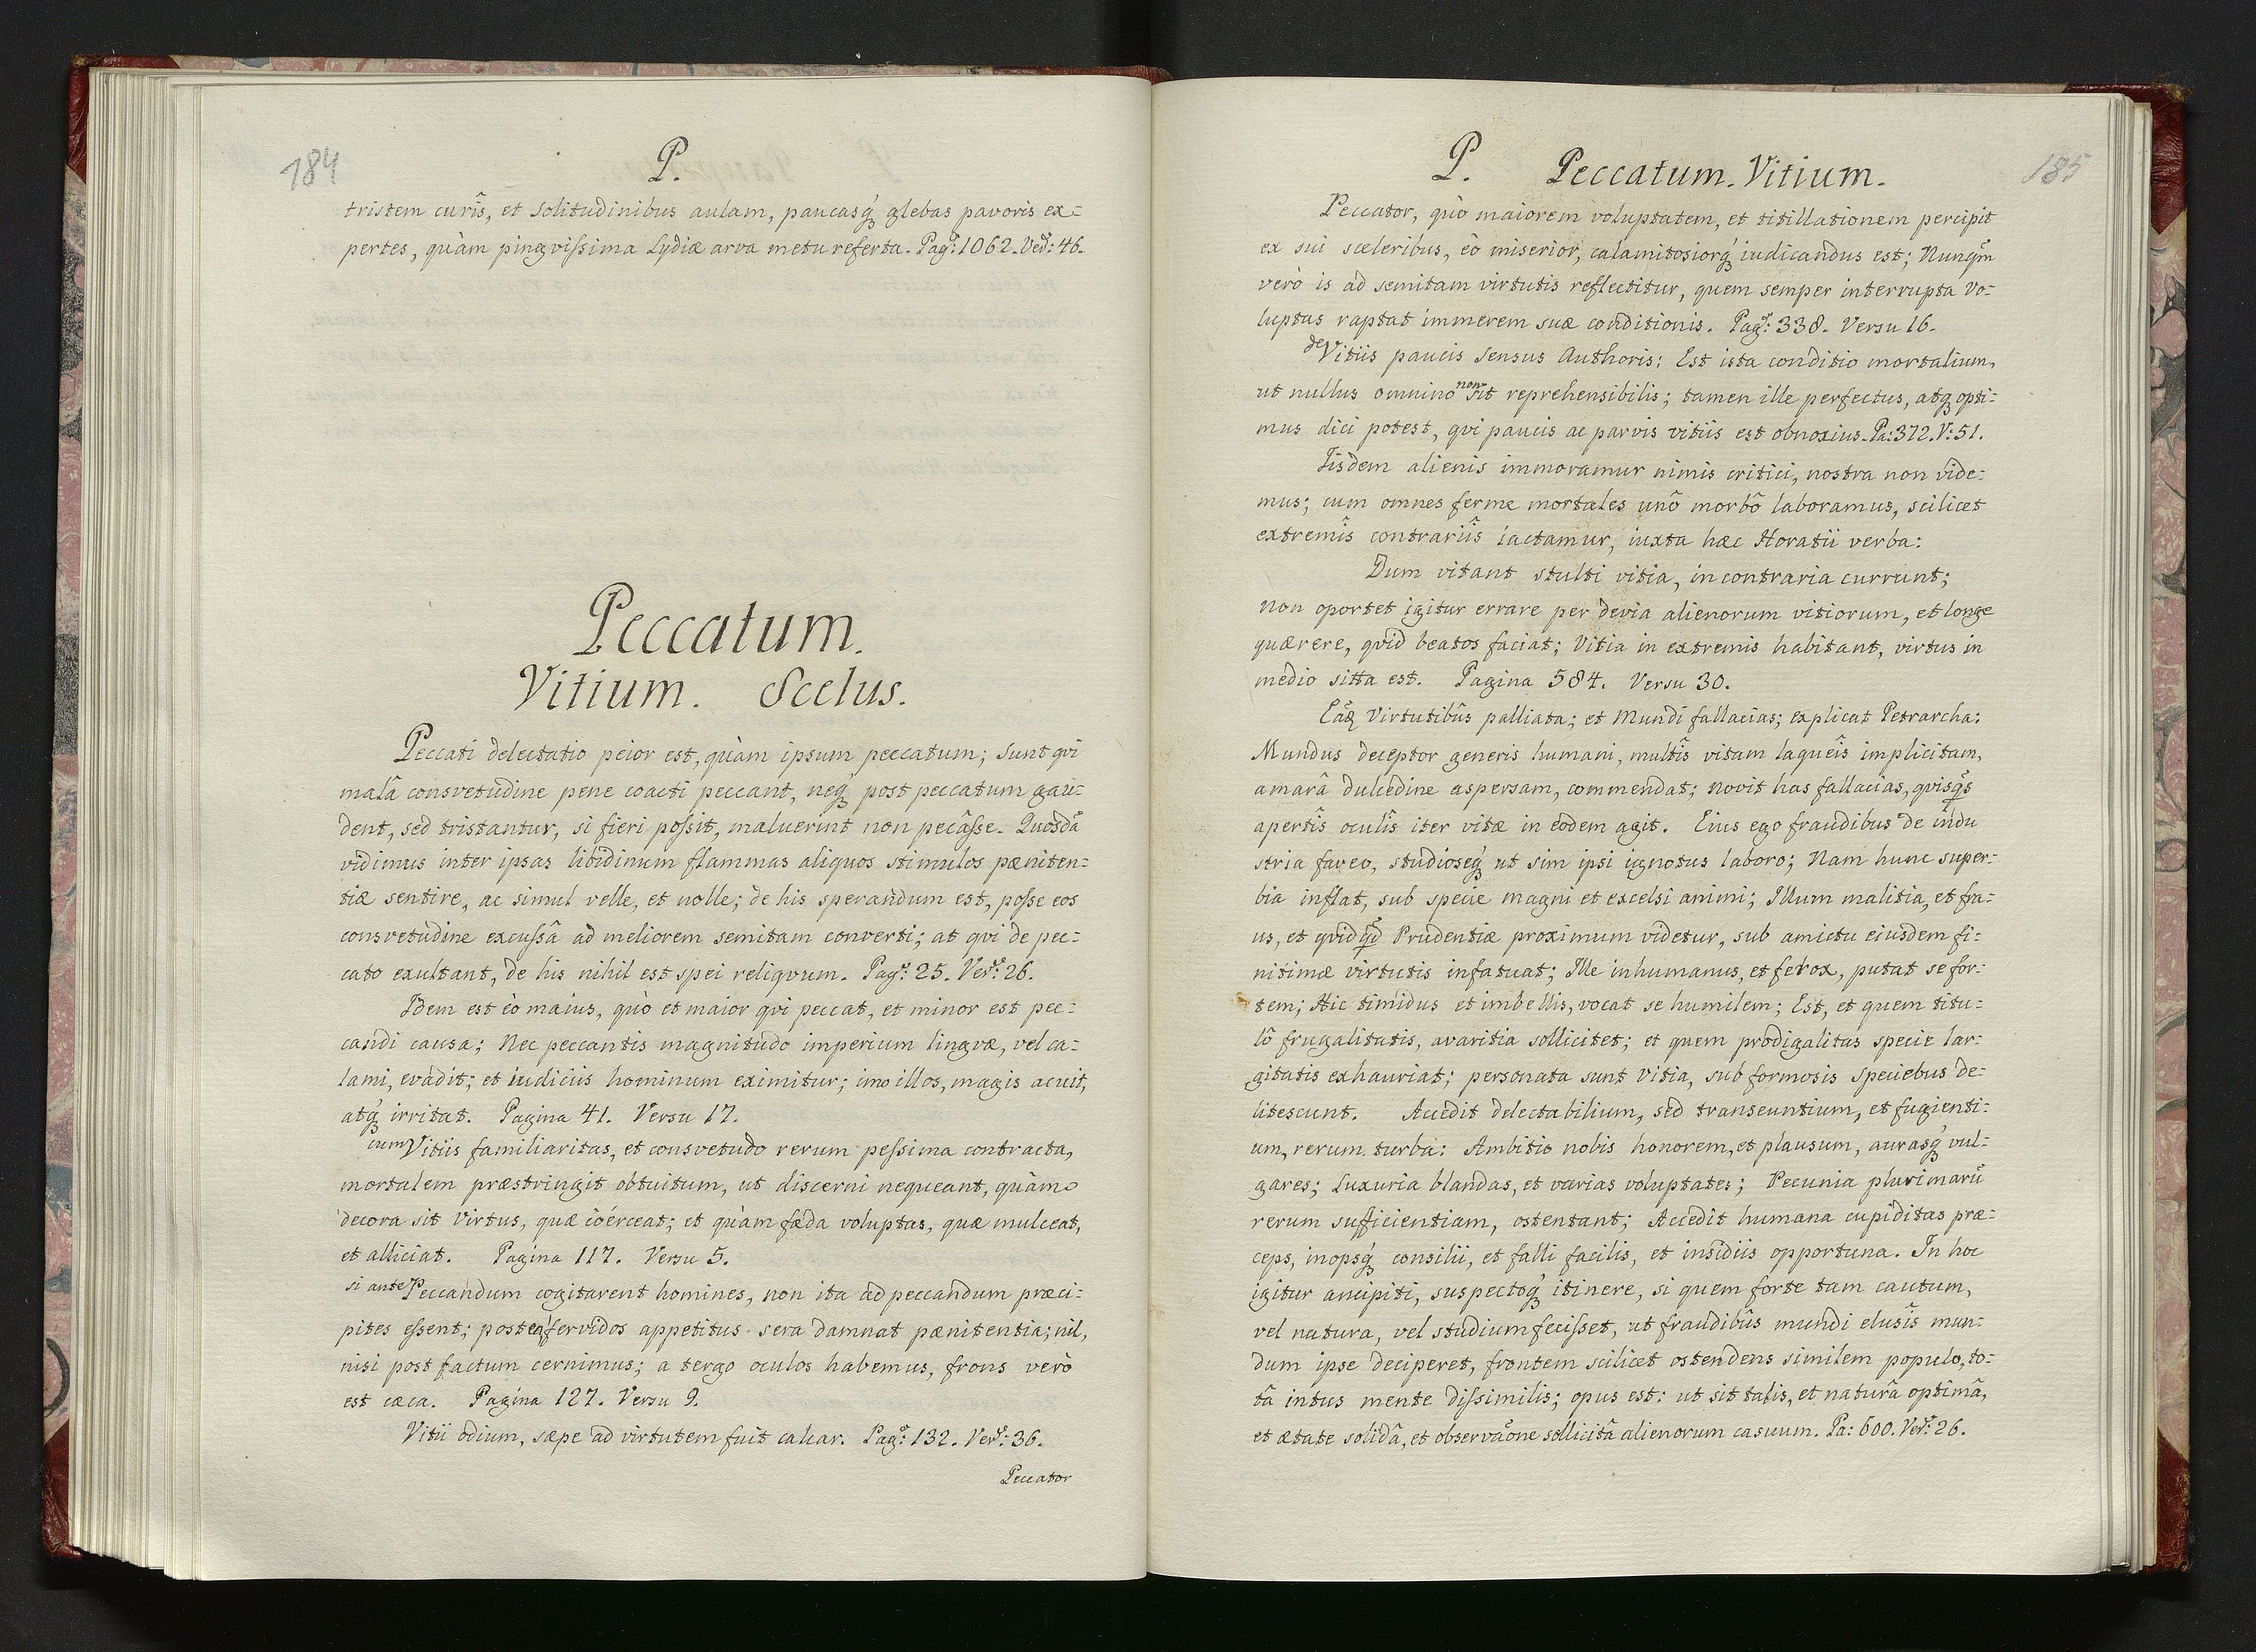 184
P.
tristem curîs, et solitudinibus aulam, paucasq́ꝫ glebas pavoris ex=
pertes, quàm pingvissima Lydiæ arva metu referta. Pagͤ: 1062. Verͤ: 46.
Peccatum.
Vitium. Scelus.
Peccati delectatio peior est, quàm ipsum peccatum; sunt qvi
malâ consvetudine pene coacti peccant, neq́ꝫ post peccatum gau=
dent, sed tristantur, si fieri possit, maluerint non pecâsse. Quosdã
vidimus inter ipsas libidinum flammas aliquos stimulos pæniten=
tiæ sentire, ac simul velle, et nolle; de his sperandum est, posse eos
consvetudine excussâ ad meliorem semitam converti; at qvi de pec=
cato exultant, de his nihil est spei reliqvum. Pagͤ: 25. Verͤ: 26.
Idem est eò maius, quò et maior qvi peccat, et minor est pec=
candi causa; Nec peccantis magnitudo imperium lingvæ, vel ca=
lami, evadit; et iudiciis hominum eximitur; imo illos, magis acuit,
atq́ꝫ irritat. Pagina 41. Versu 17.
cum Vitiis familiaritas, et consvetudo rerum pessima contracta,
mortalem præstringit obtuitum, ut discerni nequeant, quàm
decora sit Virtus, quæ coérceat; et quàm fæda voluptas, quæ mulceat,
et alliciat. Pagina 117. Versu 5.
si ante Peccandum cogitarent homines, non ita ad peccandum præci=
pites essent; postea fervidos appetitus sera damnat pænitentia; nil,
nisi post factum cernimus; a tergo oculos habemus, frons verò
est cæca. Pagina 127. Versu 9.
Vitii odium, sæpe ad virtutem fuit calcar. Pagͤ: 132. Verͤ: 36.
Peccator
P. Peccatum. Vitium.
185
Peccator, quò maiorem voluptatem, et titillationem percipit
ex sui sceleribus, eò miserior, calamitosiorq́ꝫ iudicandus est; Nunqm̃
verò is ad semitam virtutis reflectitur, quem semper interrupta vo=
luptas raptat immerem suæ conditionis. Pagͤ: 338. Versu 16.
de Vitiis paucis sensus Authoris: Est ista conditio mortalium,
ut nullus omnino non sit reprehensibilis; tamen ille perfectus, atqꝫ opti=
mus dici potest, qvi paucis ac parvis vitiis est obnoxius. Pa: 372. V: 51.
Iisdem alienis immoramur nimis critici, nostra non vide=
mus; cum omnes ferme mortales unô morbô laboramus, scilicet
extremîs contrariîs iactamur, iuxta hæc Horatii verba:
Dum vitant stulti vitia, in contraria currunt;
non oportet igitur errare per devia alienorum vitiorum, et longe
quærere, qvid beatos faciat; Vitia in extremis habitant, virtus in
medio sitta est. Pagina 584. Versu 30.
Eãqꝫ Virtutibûs palliata; et Mundi fallacias; explicat Petrarcha:
Mundus deceptor generis humani, multîs vitam laqueîs implicitam,
amarâ dulcedine aspersam, commendat; novit has fallacias, qvisq̃s
apertîs oculîs iter vitæ in eodem agit. Eius ego fraudibus de indu
stria faveo, studioseq́ꝫ ut sim ipsi ignotus laboro; Nam hunc super=
bia inflat, sub specie magni et excelsi animi; Illum malitia, et fra=
us, et qvidq̃d Prudentiæ proximum videtur, sub amictu eiusdem fi=
nitimæ virtutis infatuat; Ille inhumanus, et ferox, putat se for=
tem; Hic timidus et imbellis, vocat se humilem; Est, et quem titu=
lô frugalitatis, avaritia sollicitet; et quem prodigalitas specie lar=
gitatis exhauriat; personata sunt Vitia, sub formosis speciebus de=
litescunt. Accedit delectabilium, sed transeuntium, et fugienti=
um, rerum turba: Ambitio nobis honorem, et plausum, aurasq́ꝫ vul=
gares; Luxuria blandas, et varias voluptates; Pecunia plurimarũ
rerum sufficientiam, ostentant; Accedit humana cupiditas præ=
ceps, inopsq́ꝫ consilii, et falli facilis, et insidiis opportuna. In hoc
igitur ancipiti, suspectoq́ꝫ itinere, si quem forte tam cautum,
vel natura, vel studium fecisset, ut fraudibûs mundi elusîs mun=
dum ipse deciperet, frontem scilicet ostendens similem populo, to=
tâ intus mente dissimilis; opus est: ut sit talis, et naturâ optimâ,
et ætate solidâ, et observãone sollicitâ alienorum casuum. Pa: 600. Verͤ: 26.